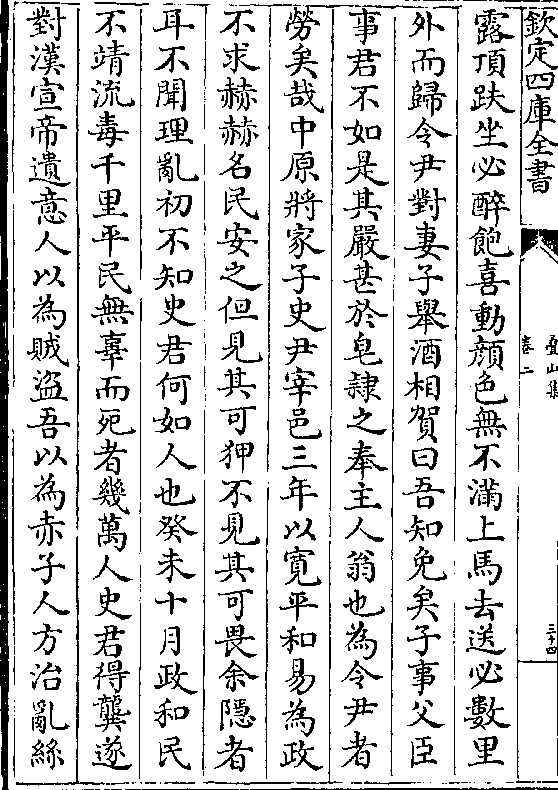 欽定四庫全書
疊山集
卷二
三十四
露頂趺坐必醉飽喜動顔色無不滿上馬去送必數里
外而歸令尹對妻子舉酒相賀曰吾知免矣子事父臣
事君不如是其嚴甚於皂隷之奉主人翁也為令尹者
勞矣哉中原將家子史尹宰邑三年以寛平和易為政
不求赫赫名民安之但見其可狎不見其可畏余隱者
耳不聞理亂初不知史君何如人也癸未十月政和民
不靖流毒千里平民無辜而死者幾萬人史君得龔遂
對漢宣帝遺意人以為賊盜吾以為赤子人方治亂絲